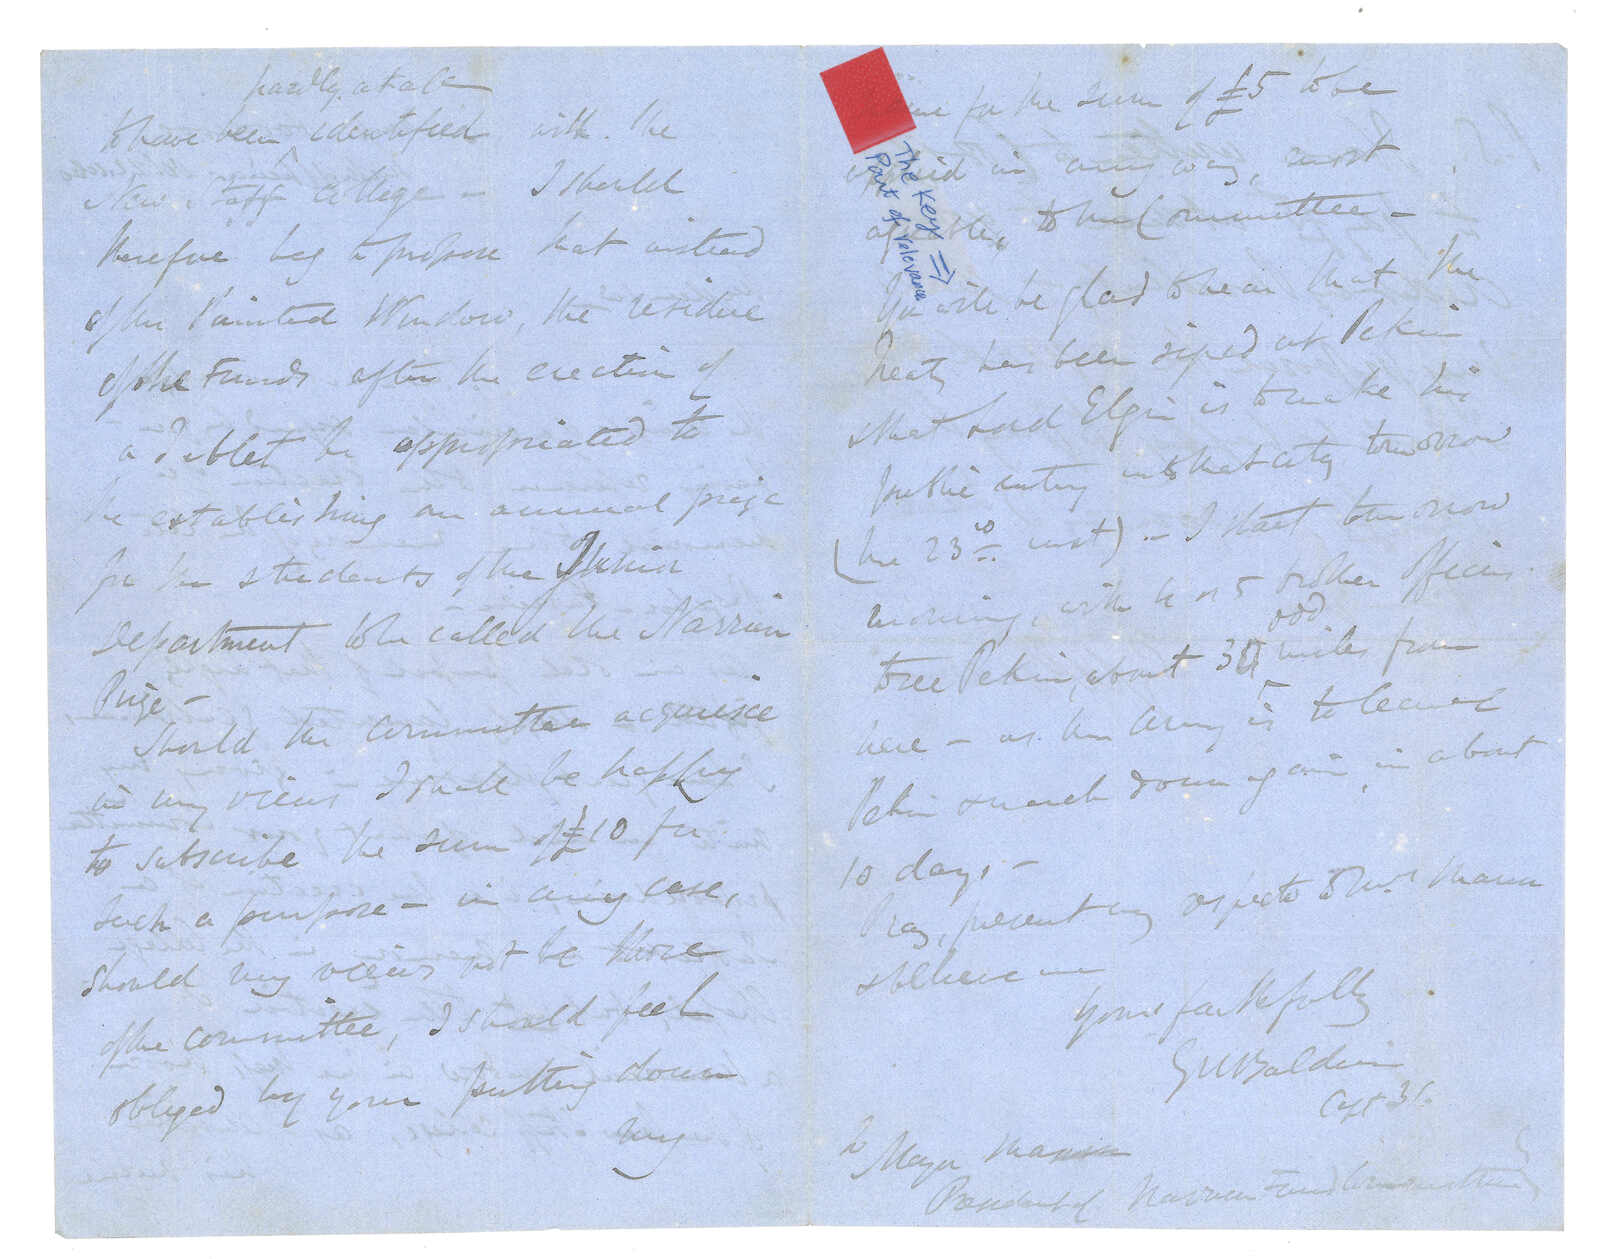 hardly at all
to have been identified with the
New Staff College - I should
therefore beg to propose that instead
of the Painted Window, the residue
of the Funds after the erection of
a Tablet be appropriated to
the establishing an annual prize
for the students of the Junior
Department to be called the Narrien
Prize -
Should the Committee acquiesce
in my views I shall be happy
to subscribe the sum of £10 for
such a purpose - in any case,
should my views not be those
of the Committee, I should feel
obliged by your putting down
my
for the sum of £5 to be
in any way, most
to the Committee -
The Key ⇒
Part of relevance
You will be glad to hear that the
Treaty has been signed at Pekin
& that Lord Elgin is to make his
public entry into that city tomorrow
(the 23rd inst) - I start tomorrow
morning, with 4 or 5 brother Officers
odd
to see Pekin, about 30 miles from
here - as the Army is to leave
Pekin & march down again in about
10 days -
Pray, present my respects to Mrs
& believe me
Yours faithfully
G W Baldwin
Capt 31.
To Major
President of Narrien Fund